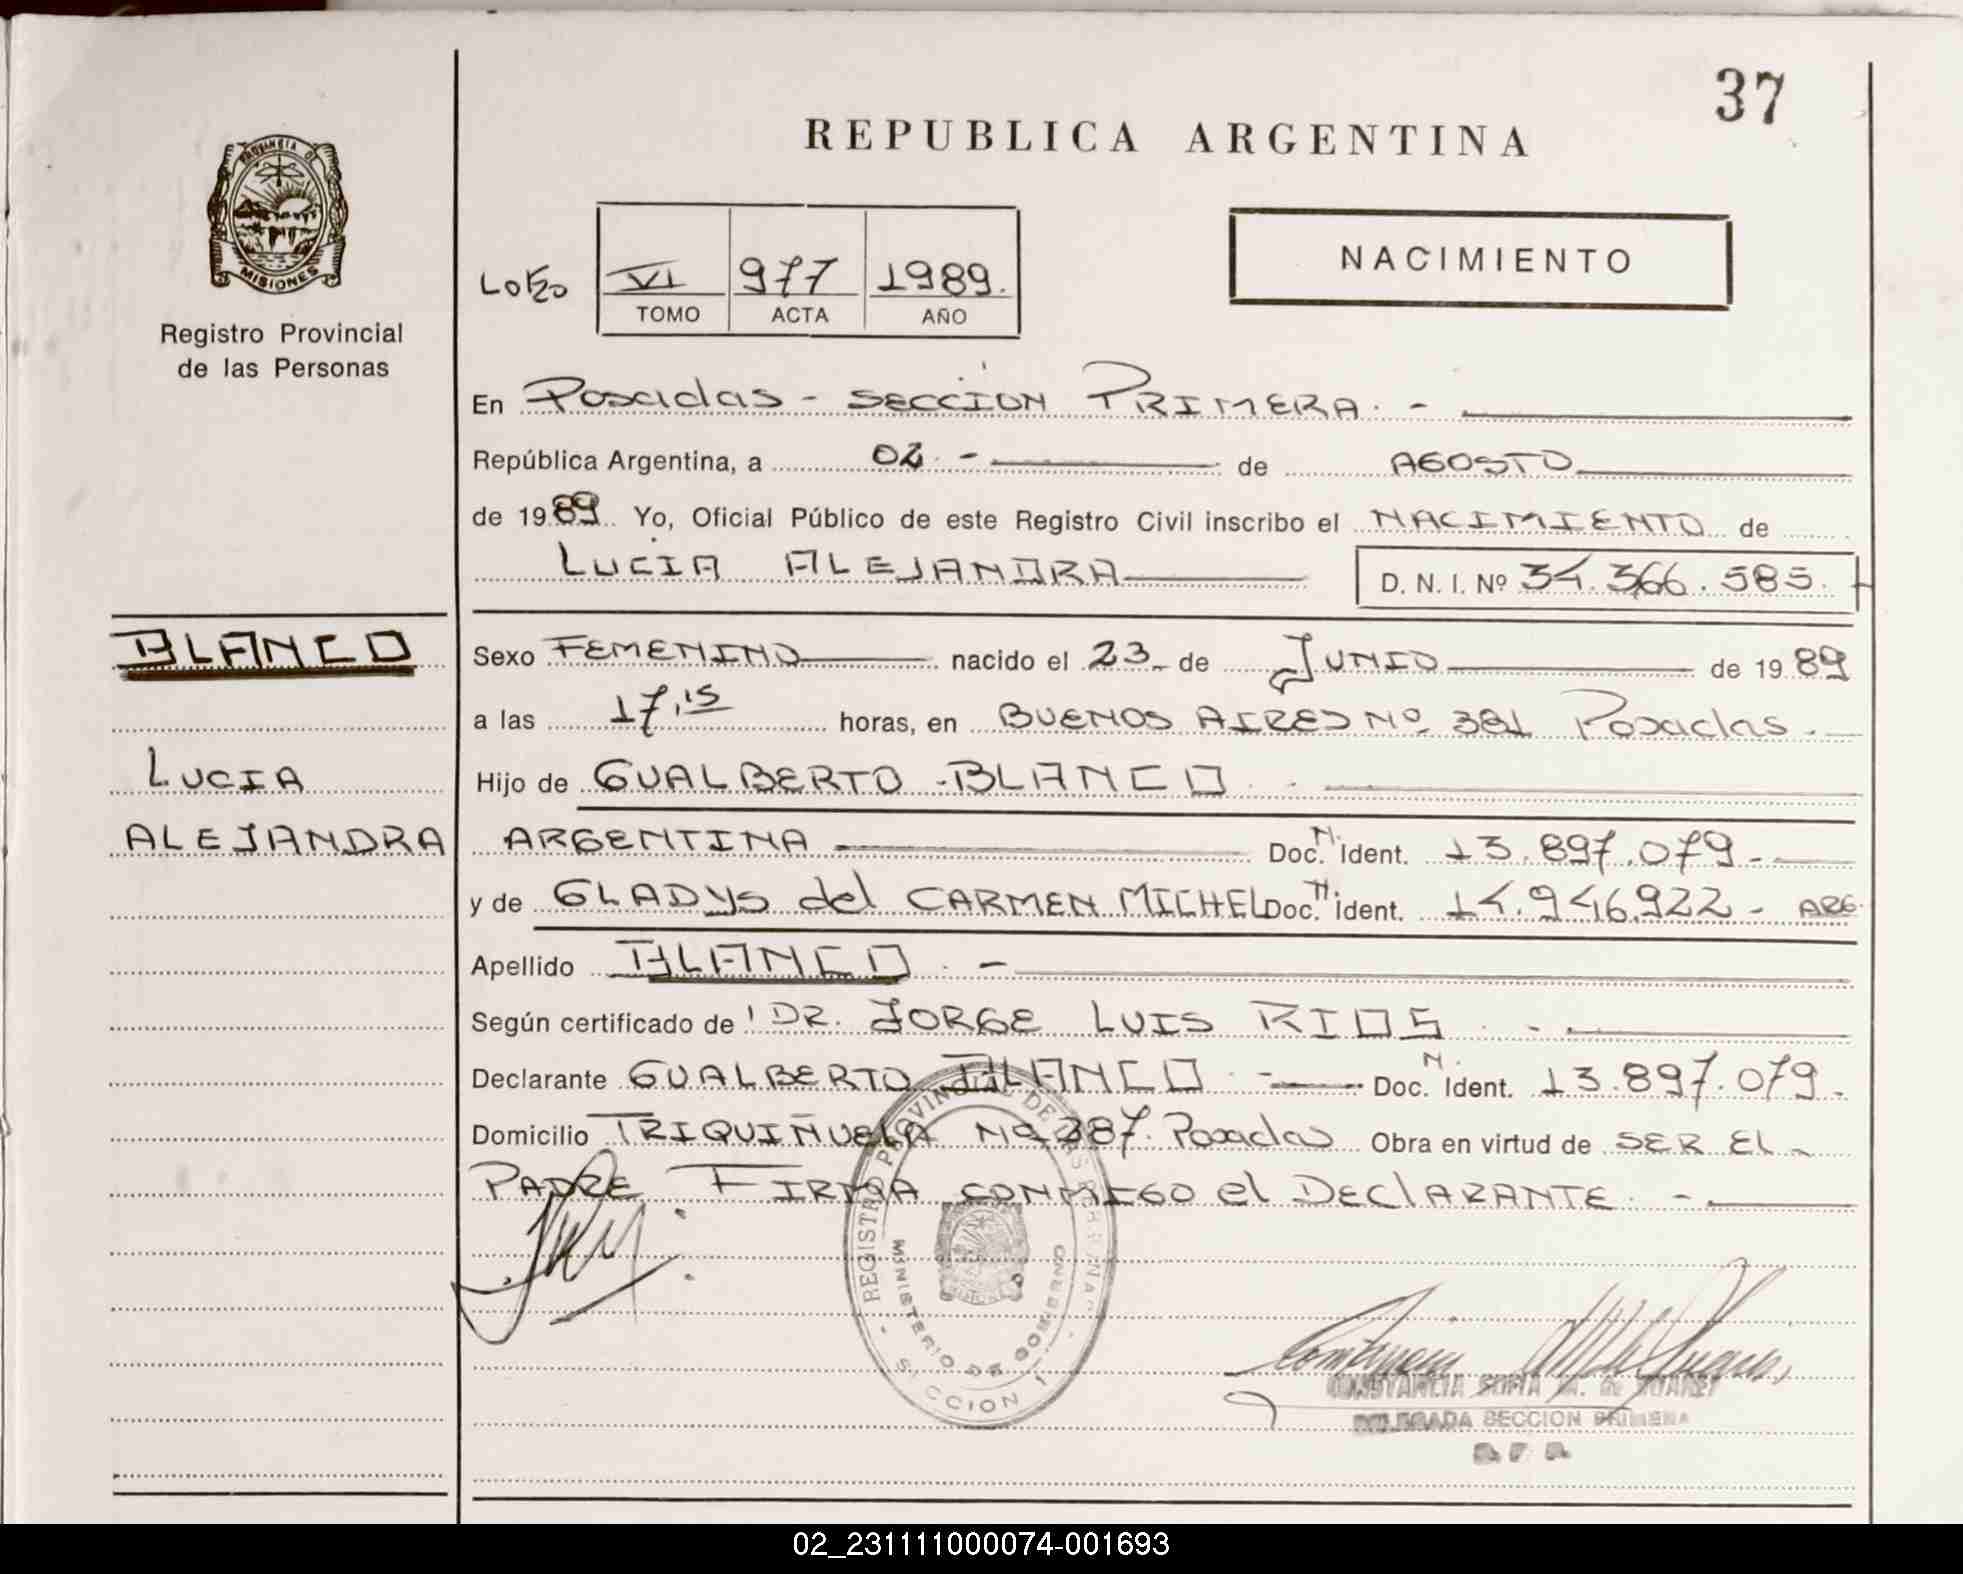 37
REPUBLICA ARGENTINA
PROVINCIA DE
MISIONES
Registro Provincial
de las Personas
NACIMIENTO
VI 977 1989.
TOMO ACTA AÑO
En Posadas - SECCION PRIMERA. -
República Argentina, a 02. - de AGOSTO
de 1989 Yo, Oficial Público de este Registro Civil inscribo el NACIMIENTO de
LUCIA ALEJANDRA
D. N. I. Nº 34.366.585.
BLANCO
LUCIA
ALEJANDRA
Sexo FEMENINO nacido el 23 de JUNIO de 1989
a las 17,15 horas, en BUENOS AIRES Nº 381 Posadas.
Hijo de GUALBERTO BLANCO
ARGENTINA Doc. N. Ident. 13.897.079-
y de GLADYS del CARMEN MICHEL Doc. N. Ident. 14.946.922 - ARG.
Apellido BLANCO. -
Según certificado de DR. JORGE LUIS RIOS. -
Declarante GUALBERTO BLANCO. - Doc. N. Ident. 13.897.079.
Domicilio TRIQUIÑUELA Nº 387. Posadas Obra en virtud de SER EL
PADRE FIRMA CONMIGO el DECLARANTE. -
REGISTRO PROVINCIAL DE LAS PERSONAS
MINISTERIO DE GOBIERNO
SECCION 1
CONSTANCIA SOFIA M. de
DELEGADA SECCION PRIMERA
02_231111000074-001693